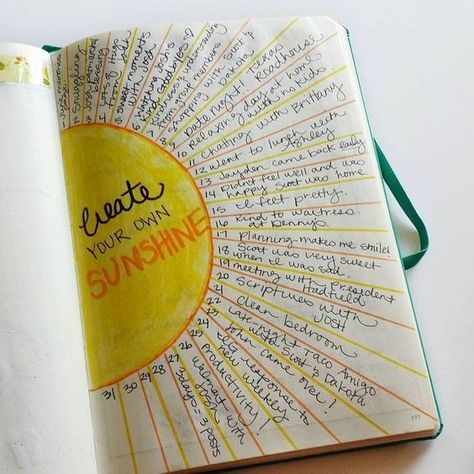 Create
YOUR OWN
SUNSHINE
1
snuggling
2
3 lots of
4
5 sweet moments
with Josh
6
7 Kindness & understanding
from group members
8 Shopping with Scott &
Dakota
9 Date Night: Texas
Roadhouse
10 Relaxing day at home
with my kids.
11 Chatting with Brittany
12 Went to lunch with
Ashley
13 Jayden came back early
14 Didn't feel well and was
happy Scott was home.
15 I feel pretty.
16 Kind to waitress
at Denny's.
17 Planning makes me smile!
18 Scott was very sweet
when I was sad.
19 Meeting with President
Hadfield
20 Scriptures with
JOSH
21 Clean bedroom
22 Late night Taco Amigo
with Scott & Dakota
23 John came over!
24 response to
weekly
25 Productivity!
26 Walmart
with
27 3 days = 3 posts
28
29
30
31